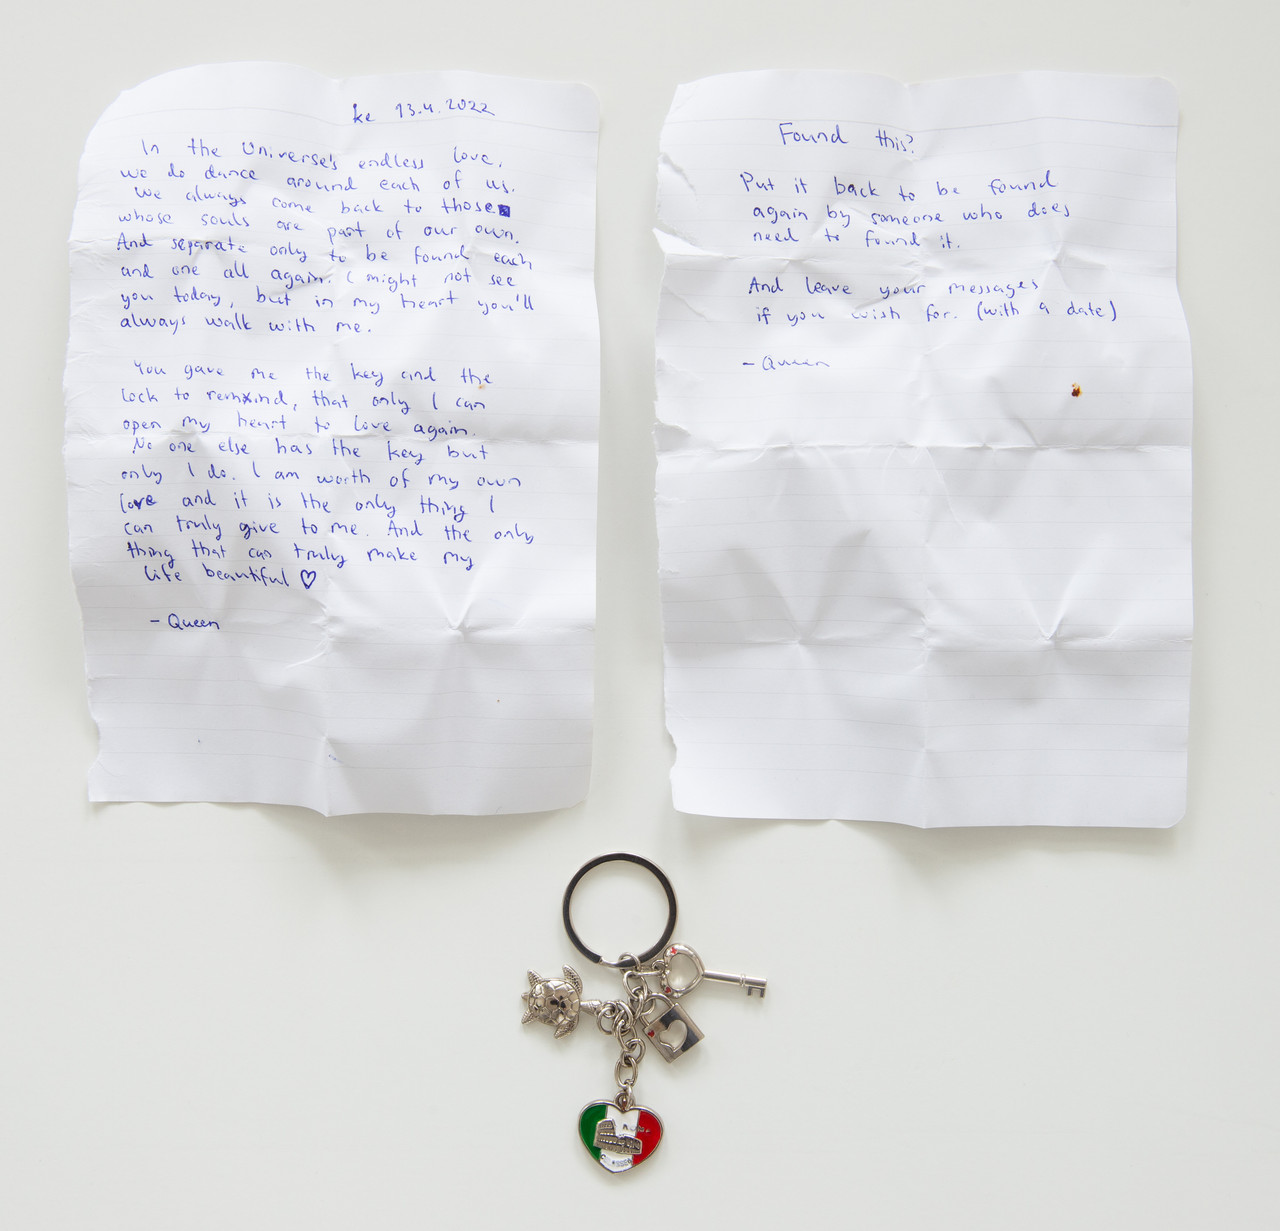 ke 13.4.2022
In the Universe's endless love,
we do dance around each of us.
We always come back to those
whose souls are part of our own.
And separate only to be found each
and one all again. I might not see
you today, but in my heart you'll
always walk with me.
You gave me the key and the
lock to remind, that only I can
open my heart to love again.
No one else has the key but
only I do. I am worth of my own
love and it is the only thing I
can truly give to me. And the only
thing that can truly make my
life beautiful ♡
- Queen
Found this?
Put it back to be found
again by someone who does
need to found it.
And leave your messages
if you wish for. (with a date)
- Queen